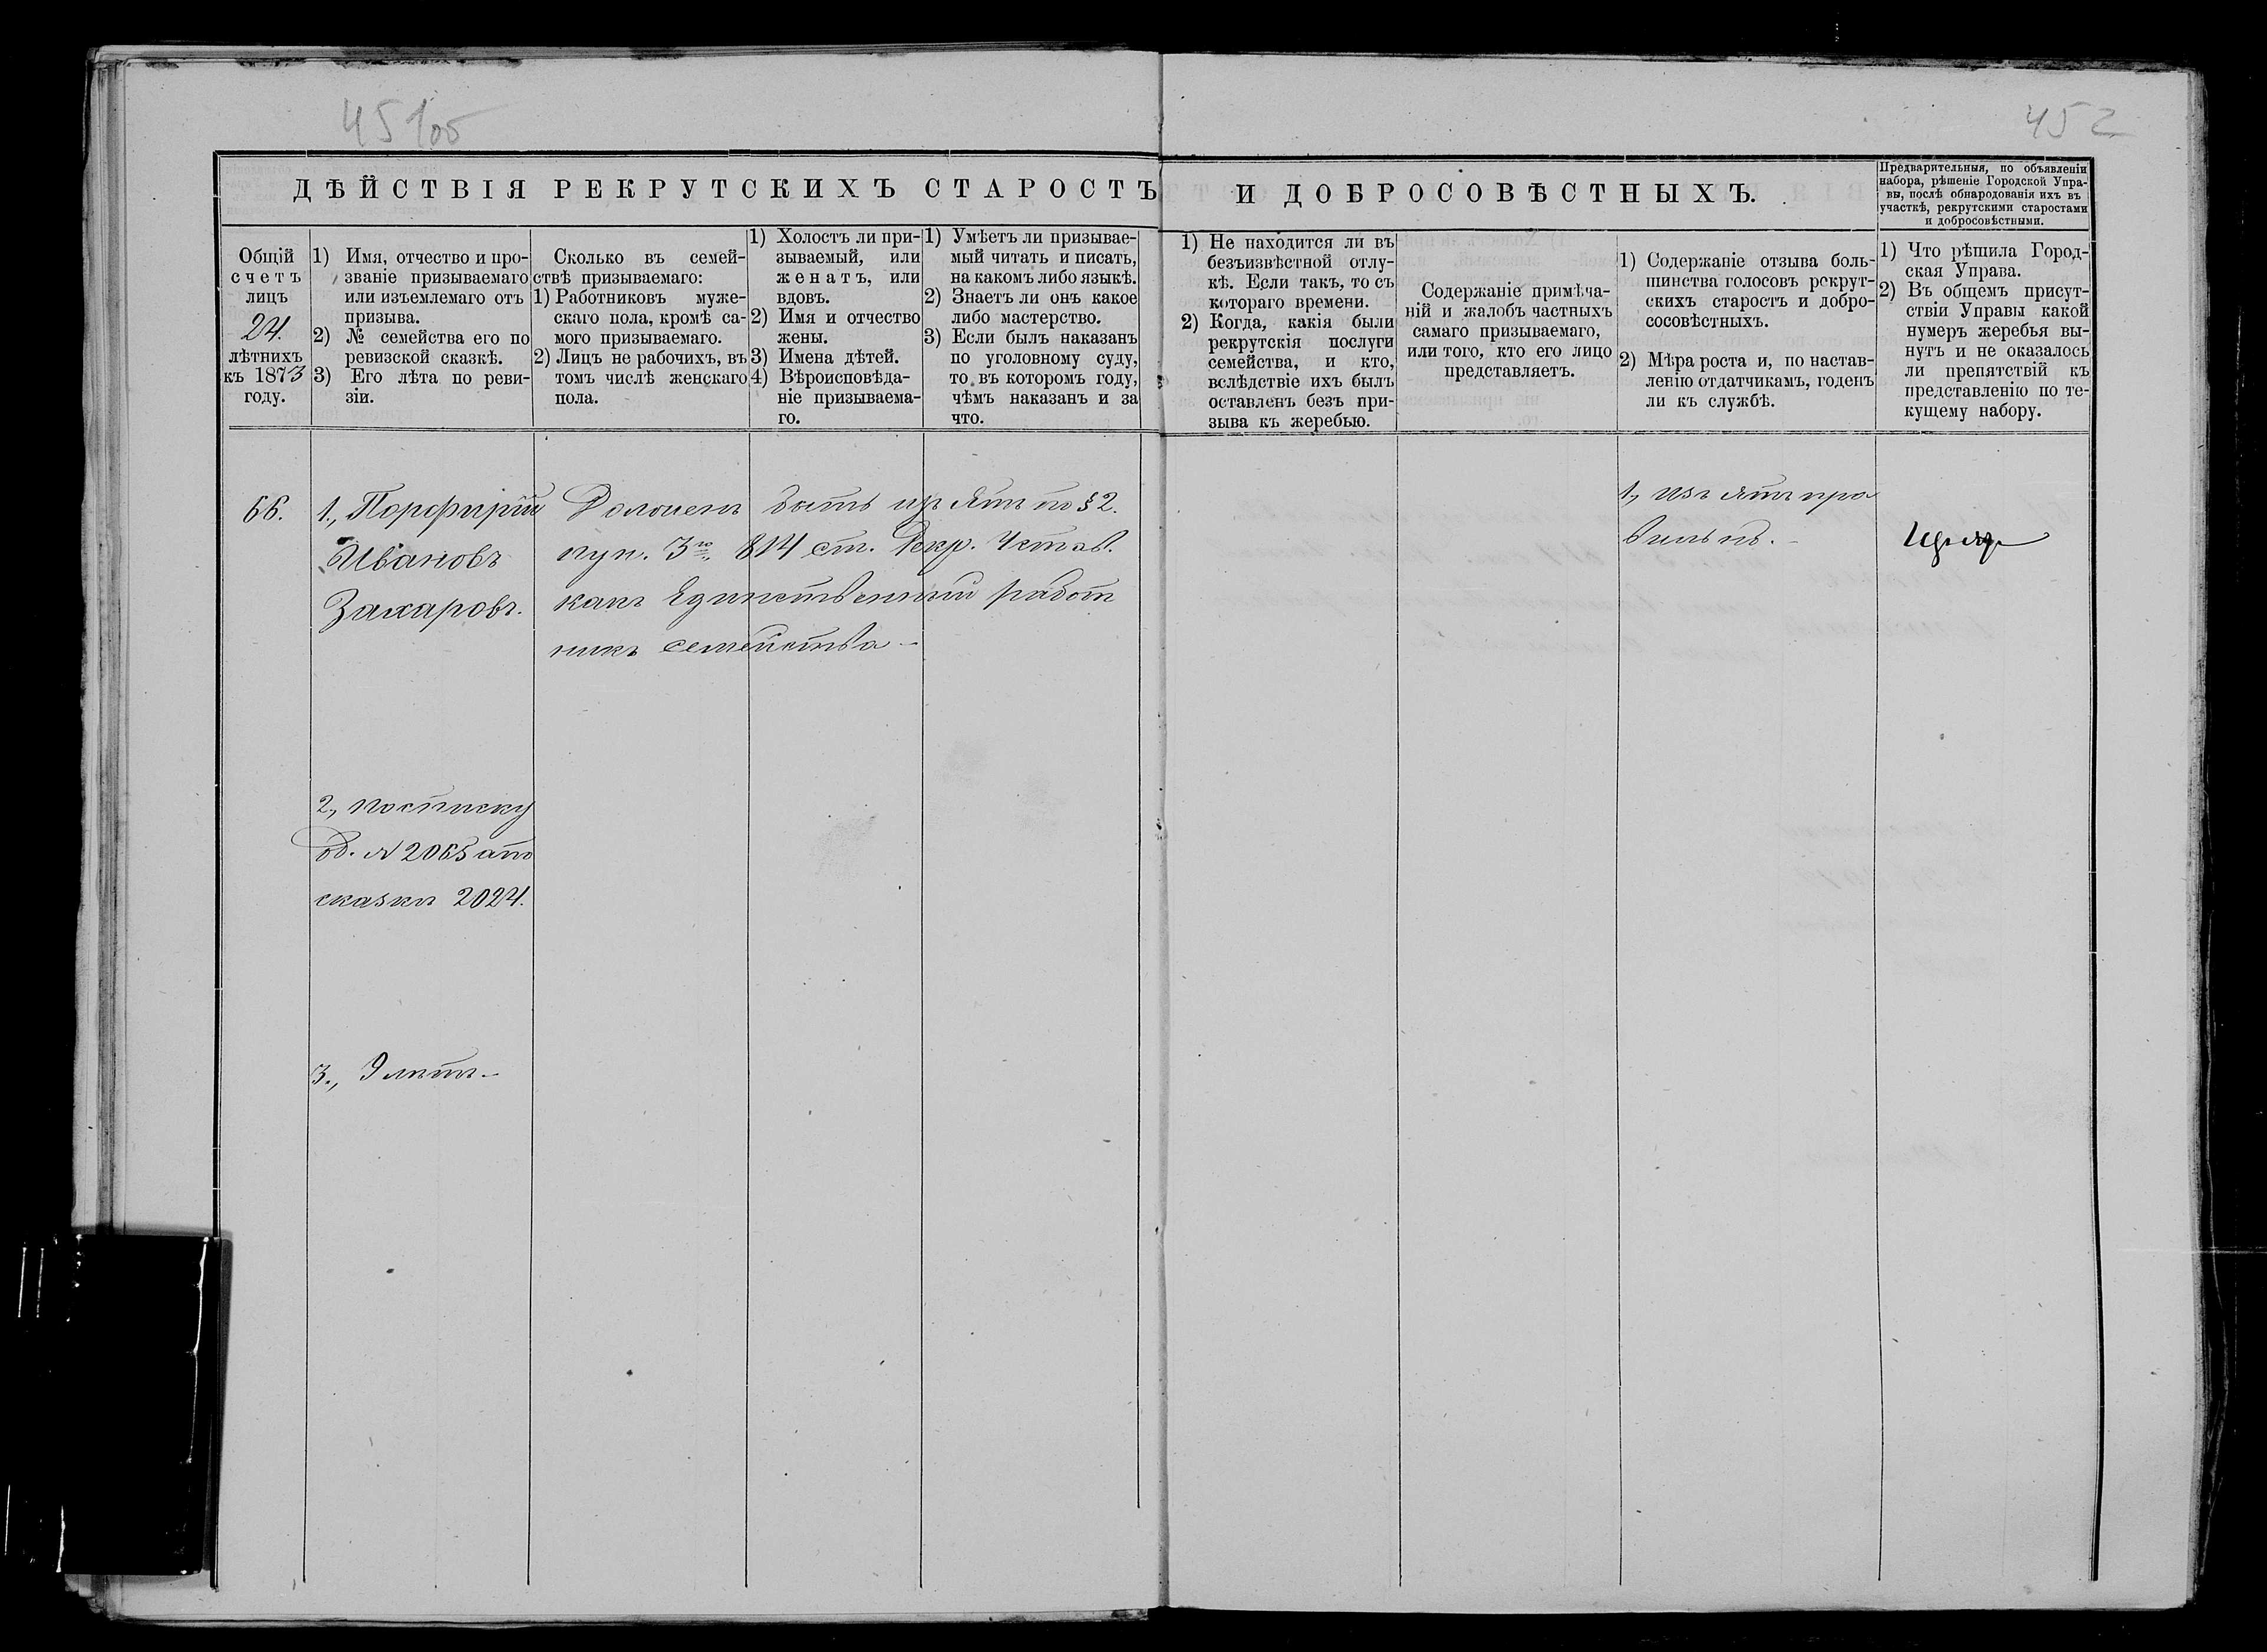 451об
452
ДѢЙСТВІЯ РЕКРУТСКИХЪ СТАРОСТЪ И ДОБРОСОВѢСТНЫХЪ.
Предварительныя, по объявленіи
набора, рѣшеніе Городской Упра-
вы, послѣ обнародованія ихъ въ
участкѣ, рекрутскими старостами
и добросовѣстными.
Общій
счетъ
лицъ
24.
лѣтнихъ
къ 1873
году.
1) Имя, отчество и про-
званіе призываемаго
или изъемлемаго отъ
призыва.
2) № семейства его по
ревизской сказкѣ.
3) Его лѣта по реви-
зіи.
Сколько въ семей-
ствѣ призываемаго:
1) Работниковъ муже-
скаго пола, кромѣ са-
мого призываемаго.
2) Лицъ не рабочихъ, въ
томъ числѣ женскаго
пола.
1) Холостъ ли при-
зываемый, или
женатъ, или
вдовъ.
2) Имя и отчество
жены.
3) Имена дѣтей.
4) Вѣроисповѣда-
ніе призываема-
го.
1) Умѣетъ ли призывае-
мый читать и писать,
на какомъ либо языкѣ.
2) Знаетъ ли онъ какое
либо мастерство.
3) Если былъ наказанъ
по уголовному суду,
то въ которомъ году,
чѣмъ наказанъ и за
что.
1) Не находится ли въ
безъизвѣстной отлу-
кѣ. Если такъ, то съ
котораго времени.
2) Когда, какія были
рекрутскія послуги
семейства, и кто,
вслѣдствіе ихъ былъ
оставленъ безъ при-
зыва къ жеребью.
Содержаніе примѣча-
ній и жалобъ частныхъ
самаго призываемаго,
или того, кто его лицо
представляетъ.
1) Содержаніе отзыва боль-
шинства голосовъ рекрут-
скихъ старостъ и добро-
сосовѣстныхъ.
2) Мѣра роста и, по настав-
ленію отдатчикамъ, годенъ
ли къ службѣ.
1) Что рѣшила Город-
ская Управа.
2) Въ общемъ присут-
ствіи Управы какой
нумеръ жеребья вы-
нутъ и не оказалось
ли препятствій къ
представленію по те-
кущему набору.
66.
1., Порфирій
Ивановъ
Захаровъ.
Долженъ быть изъятъ по § 2.
пун. 3го 814 ст. Рекр. Устав.
какъ Единственный работ
никъ семейства –
1, изъятъ пра
вильнъ. –
2, по списку
об. № 2065 а по
сказкѣ 2024.
3., 9 лѣтъ –